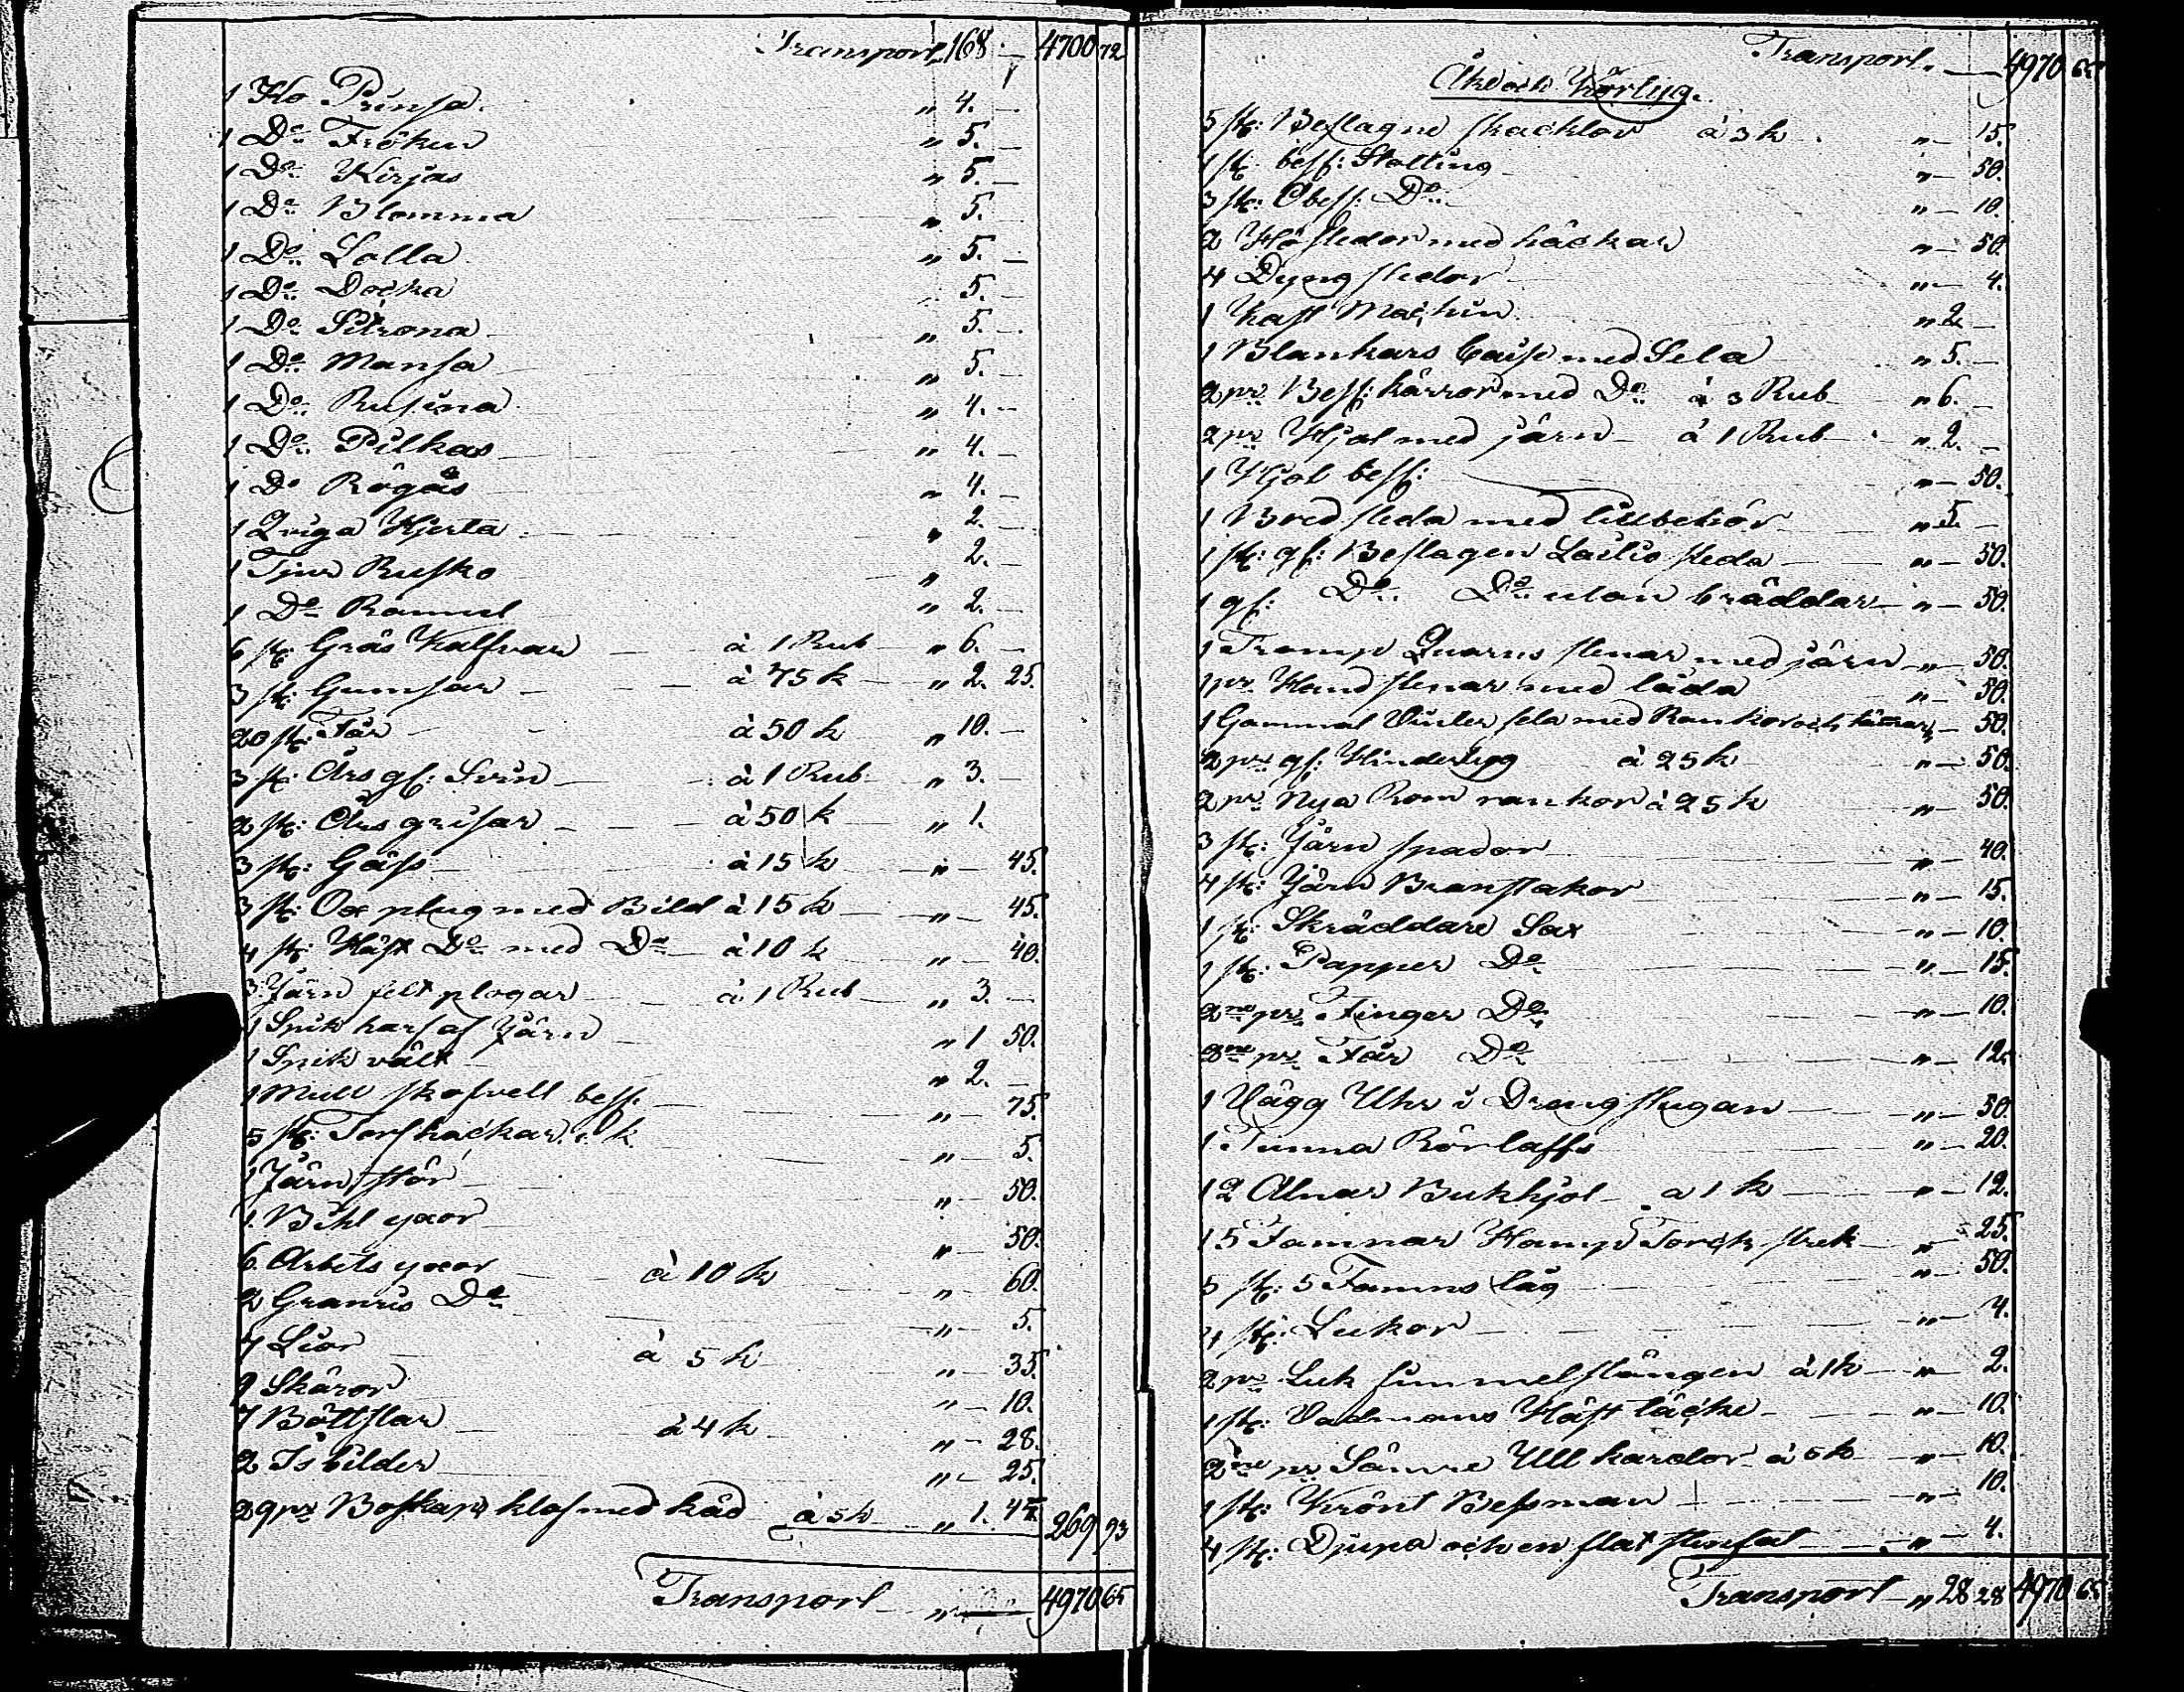 Transport „ 168 — 4700 72
1 Ko Prinsa „ 4. —
1 Do Fröken „ 5. —
1 Do Kirjas „ 5. —
1 Do Blomma „ 5. —
1 Do Lolla „ 5. —
1 Do Docka 5. —
1 Do Sitrona „ 5. —
1 Do Mansa „ 5. —
1 Do Rusina „ 4. —
1 Do Pilkas „ 4. —
1 Do Rögås „ 4. —
1 Qviga Hjerta „ 2. —
1 Tjur Rusko „ 2. —
1 Do Ramul „ 2. —
6 st: Gräs Kalfvar — à 1 Rub „ 6. —
3 st: Gumsar — à 75 k „ 2. 25.
20 st: Får — à 50 k „ 10. —
3 st: Års gl: Svin — à 1 Rub „ 3. —
2 st: Års grisar — à 50 k „ 1.
3 st: Gäss — à 15 k „ — 45.
3 st: Ox plug med Bild à 15 k „ — 45.
4 st: Häst Do med Do — à 10 k „ — 40.
3 Järn felt plogar — à 1 Rub „ 3. —
1 Spik harf af Järn „ 1 50.
1 Spik vält „ 2. —
1 Mull skofvell besl. „ — 75.
5 st: Torf hackar à 1 k „ — 5.
1 Järn stör „ 50.
1 Bihl yxor „ — 50.
6 Arbets yxor — à 10 k „ — 60.
2 Granris Do „ — 5.
7 Liar — à 5 k „ — 35.
9 Skäror „ — 10.
7 Böttslar — à 4 k „ — 28.
2 Is bilder „ — 25.
29 pr Boskaps klaf med kåd à 5 k „ 1. 45. 269 93
Transport „ — 4970 65
Transport — 4970 65
Åk och Körtyg.
5 st: Beslagne skacklor à 3 k „ — 15.
1 st besl: Stötting „ — 50.
3 st: Obesl: Do „ — 10.
2 Hö sledor med häckar „ — 50.
4 Dyng sledor „ — 4.
1 Kast Machin „ 2 —
1 Blankars Caise med Sela „ 5. —
2 pr Besl: kärror med Do à 3 Rub „ 6. —
2 pr Hjol med järn — à 1 Rub „ 2. —
1 Hjol besl: „ — 50.
1 Bred sleda med tillbehör „ 5. —
1 st: gl: Beslagen Lastis sleda „ — 50.
1 gl: Do Do utan bräddar „ — 50.
1 Tramp Quarns stenar med järn „ — 50.
1 pr Hand stenar med låda „ — 50.
1 Gammal Vinter sela med Rankor och tömar „ — 50.
2 pr gl: Hindertyg à 25 k „ — 50.
2 pr Nya Rom rankor à 25 k „ — 50.
3 st: Järn spador „ — 40.
4 st: Järn Branstakor „ — 15.
1 st: Skräddare Sax „ — 10.
1 st: Papper Do „ — 15.
2ne pr Finger Do „ — 10.
3ne pr Får Do „ — 12.
1 Vägg Uhr i Dräng stugan „ — 50.
1 Tunna Rörlaffs „ — 20.
12 Alnar Bukhjol — à 1 k „ — 12.
15 Famnar Hamp Torck strek „ — 25.
5 st: 5 Famns tåg „ — 50.
4 st: Lukor „ — 4.
2 pr Luk himmelstången à 1k „ — 2.
1 st: Vadmans Häst täcke „ — 10.
2ne pr Sämre Ull kardor à 5 k „ — 10.
1 st: Krönt Bessman „ — 10.
4 st: Djupa och en flat stenfat „ — 4.
Transport „ 28 28 4970 65